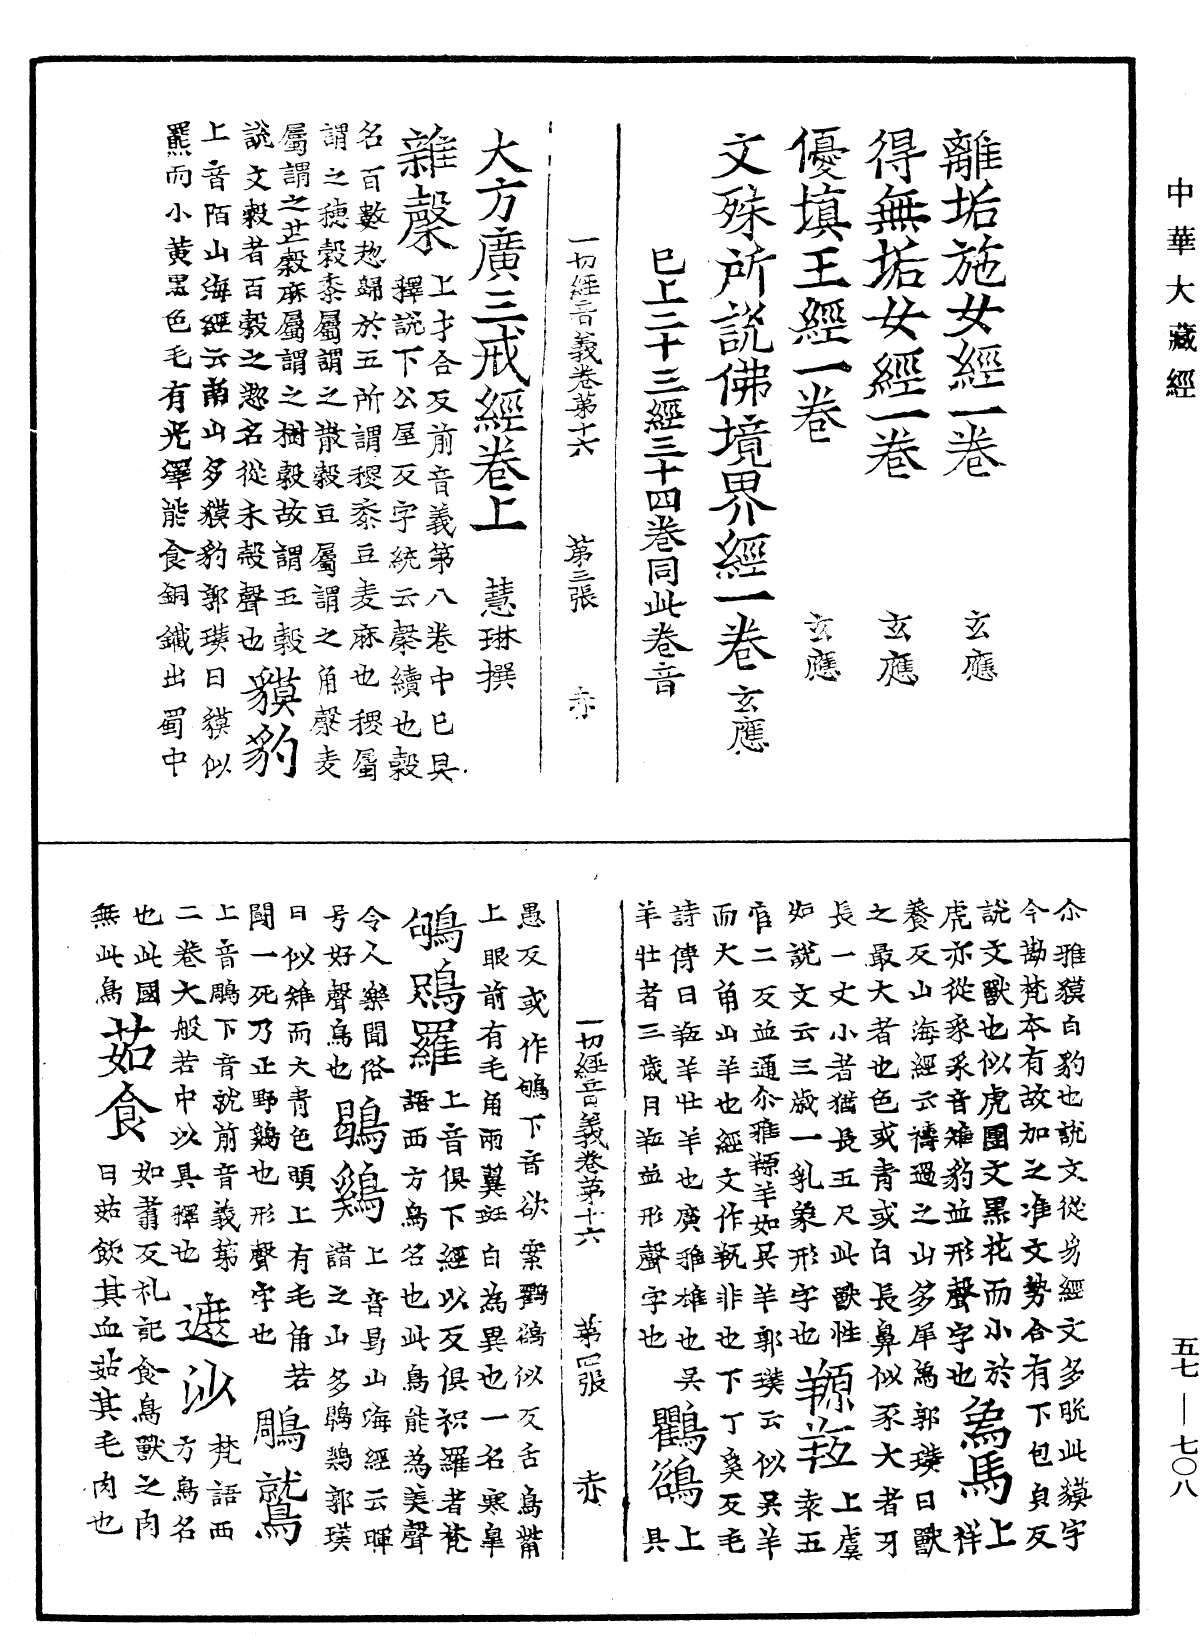 中華大藏經
離垢施女經一卷 玄應
得無垢女經一卷 玄應
優填王經一卷 玄應
文殊所説佛境界經一卷 玄應
已上二十三經三十四卷同此卷音
一切經音義卷第十六 第三張 赤
大方廣三戒經卷上 慧琳撰
雜糓 上才合反前音義第八卷中已具
釋説下公屋反字統云糓續也穀
名百數惣歸於五所謂稷黍豆麦麻也稷屬
謂之穗穀黍屬謂之散穀豆屬謂之角糓麦
屬謂之芒穀麻屬謂之樹穀故謂五穀
説文穀者百穀之惣名從禾㱿聲也 貘豹
上音陌山海經云南山多貘豹郭璞曰貘似
羆而小黄黑色毛有光澤能食銅鐵出蜀中
尒雅貘白豹也説文從豸經文多脱此貘字
今勘梵本有故加之准文勢合有下包皃反
説文獸也似虎團文黑花而小於 為馬 上
虎亦從豸豸音雉豹並形聲字也 祥
養反山海經云禱過之山多犀為郭璞曰獸
之最大者也色或青或白長鼻似豕大者牙
長一丈小者猶長五尺此獸性 上虞
如説文云三歲一乳象形字也 羱羝 羱五
官二反並通尒雅羱羊如吴羊郭璞云似吴羊
而大角山羊也經文作羝非也下丁奚反毛
詩傳曰羝羊牡羊也廣雅雄也吴 鸜鵒 上
羊牡者三歲曰羝並形聲字也 具
一切經音義卷第十六 第四張 赤
愚反或作鴝下音欲案鸜鵒似反舌鳥觜
上眼前有毛角兩翼斑白為異也一名寒皐
鴝鵙羅 上音俱下經以反俱枳羅者梵
語西方鳥名也此鳥能為美聲
令人樂聞俗 鶡鷄 上音曷山海經云暉
号好聲鳥也 諸之山多鶡鷄郭璞
曰似雉而大青色頭上有毛角若 鵰鷲
鬪一死乃止野鷄也形聲字也
上音鵰下音就前音義第 遮沙 梵語西
二卷大般若中以具釋也 方鳥名
也此國 茹食 如蓊反礼記食鳥獸之肉
無此鳥 曰茹飲其血茹其毛肉也
五七—七〇八